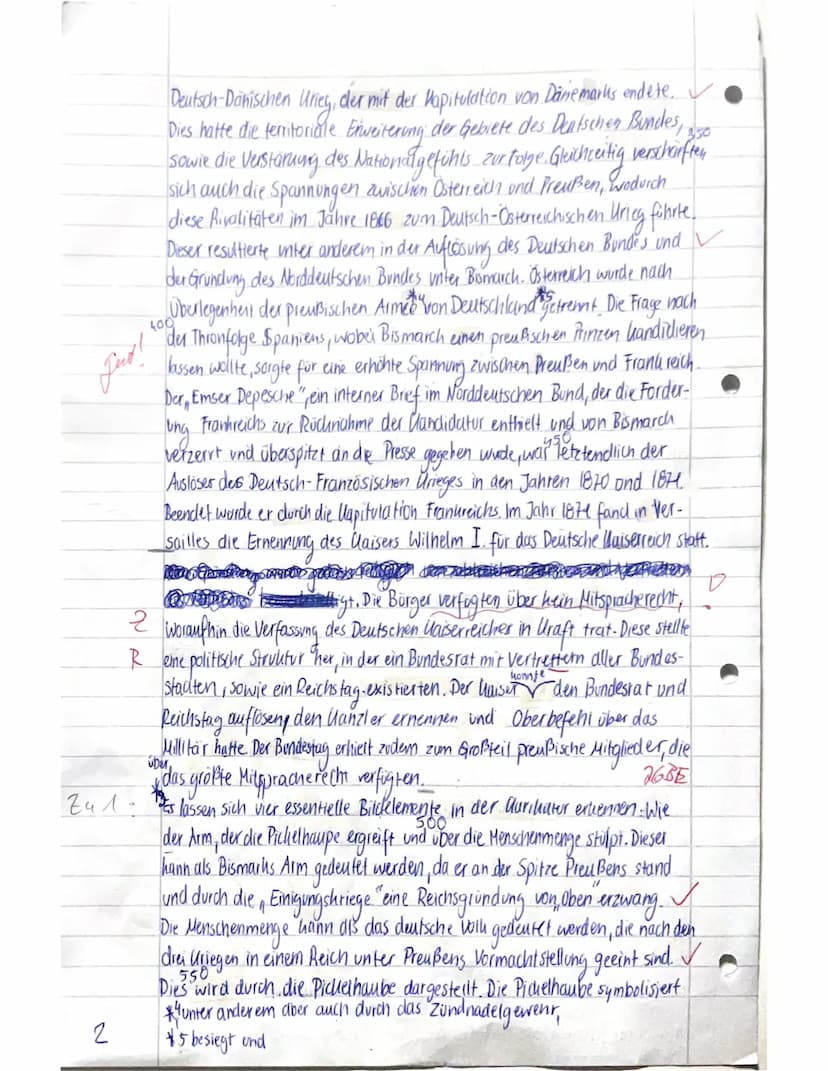 Deutsch-Dänischen Krieg, der mit der Kapitulation von Dänemarks endete. ✓
Dies hatte die territoriale Erweiterung der Gebiete des Deutschen Bundes, 350
sowie die Verstärkung des Nationalgefühls zur Folge. Gleichzeitig verschärften
sich auch die Spannungen zwischen Österreich und Preußen, wodurch
diese Rivalitäten im Jahre 1866 zum Deutsch-Österreichischen Krieg führte.
Dieser resultierte unter anderem in der Auflösung des Deutschen Bundes und ✓
der Gründung des Norddeutschen Bundes unter Bismarck. Österreich wurde nach
Überlegenheit der preußischen Armee *4 von Deutschland *5 getrennt. Die Frage nach
400 der Thronfolge Spaniens, wobei Bismarck einen preußischen Prinzen kandidieren
lassen wollte, sorgte für eine erhöhte Spannung zwischen Preußen und Frankreich.
Der „Emser Depesche", ein interner Brief im Norddeutschen Bund, der die Forder-
ung Frankreichs zur Rücknahme der Kandidatur enthielt und von Bismarck
verzerrt und überspitzt an die Presse gegeben wurde, war 450 letztendlich der
Auslöser des Deutsch-Französischen Krieges in den Jahren 1870 und 1871.
Beendet wurde er durch die Kapitulation Frankreichs. Im Jahr 1871 fand in Ver-
sailles die Ernennung des Kaisers Wilhelm I. für das Deutsche Kaiserreich statt.
Die Bürger verfügten über kein Mitspracherecht,
Z woraufhin die Verfassung des Deutschen Kaiserreiches in Kraft trat. Diese stellte
R eine politische Struktur her, in der ein Bundesrat mit Vertrettern aller Bundes-
staaten, sowie ein Reichstag existierten. Der Kaiser konnte den Bundesrat und
Reichstag auflösen, den Kanzler ernennen und Oberbefehl über das
Militär hatte. Der Bundestag erhielt zudem zum Großteil preußische Mitglieder, die
über das größte Mitspracherecht verfügten. 26BE
Zu 1: Es lassen sich vier essentielle Bildelemente in der Karikatur erkennen: Wie
der Arm, der die Pickelhaupe ergreift und 500 über die Menschenmenge stülpt. Dieser
kann als Bismarks Arm gedeutet werden, da er an der Spitze Preußens stand
und durch die „Einigungskriege" eine Reichsgründung von „Oben" erzwang. ✓
Die Menschenmenge kann als das deutsche Volk gedeutet werden, die nach den
drei Kriegen in einem Reich unter Preußens Vormachtstellung geeint sind. ✓
Dies 550 wird durch die Pickelhaube dargestellt. Die Pickelhaube symbolisiert
*4 unter anderem aber auch durch das Zündnadelgewehr,
*5 besiegt und
2